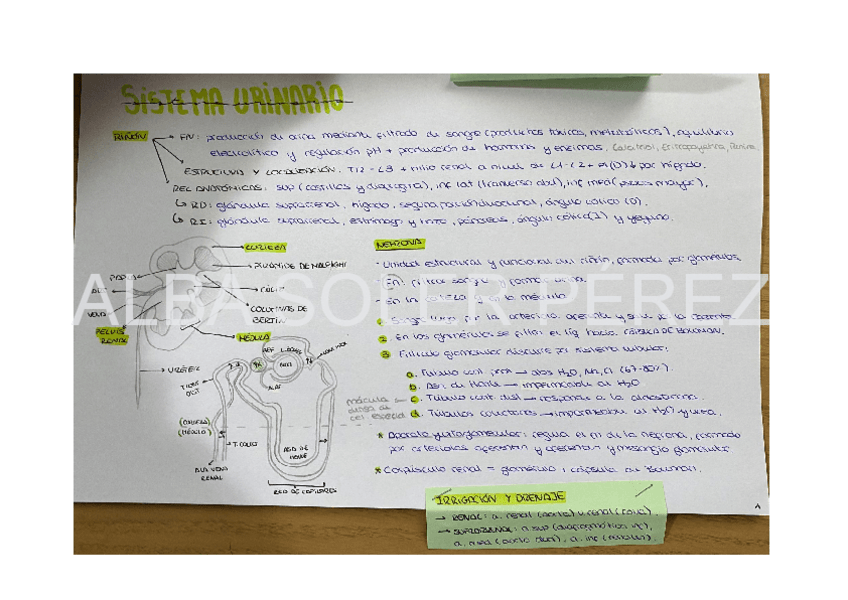 SISTEMA URINARIO
RIÑÓN → FN: producción de orina mediante filtrado de sangre (productos tóxicos, metabólicos), equilibrio
electrolítico y regulación pH + producción de hormonas y enzimas. Calcitriol, Eritropoyetina, Renina
ESTRUCTURA Y LOCALIZACIÓN: T12-L3 + hilio renal a nivel de L1-L2 + R(D)↓ por hígado.
REL ANATÓMICAS: sup (costillas y diafragma), inf lat (transverso abd), inf med (psoas mayor),
↳ RD: glándula suprarrenal, hígado, segunda porción duodenal, ángulo cólico (D).
↳ RI: glándula suprarrenal, estómago y bazo, páncreas, ángulo cólico (I) y yeyuno.
CORTEZA
PIRÁMIDE DE MALPIGHI
CÁLIZ
COLUMNAS DE
BERTIN
MÉDULA
PAPILA
VENA
PELVIS
RENAL
URÉTER
NEFRONA
- Unidad estructural y funcional del riñón, formada por glomérulos
- FN: filtrar sangre y formar orina.
- En la corteza y en la médula
1. Sangre llega por la arteriola aferente y sale por la eferente.
2. En los glomérulos se filtra el líq hacia CÁPSULA DE BOWMAN.
3. Filtrado glomerular discurre por sistema tubular:
a. Túbulo cont. prox → abs H2O, Na, Cl (67-80%).
b. Asa de Henle → impermeable al H2O
c. Túbulo cont dist → responde a la aldosterona.
d. Túbulos colectores → impermeables al H2O y urea.
mácula
densa de
cel especial
* Aparato yuxtaglomerular: regula el fn de la nefrona, formado
por arteriolas aferentes y eferentes y mesangio glomerular
* Corpúsculo renal = glomérulo + cápsula de Bowman.
(CORTEZA)
(MÉDULA)
T. COLECT
ASA DE
HENLE
RAMA VENA
RENAL
RED DE CAPILARES
IRRIGACIÓN Y DRENAJE
→ RENAL: a. renal (aorta) v. renal (cava).
→ SUPRARRENAL: a. sup (diafragmática inf),
a. med (aorta abd), a. inf (renales).
ALBA SOLER PÉREZ